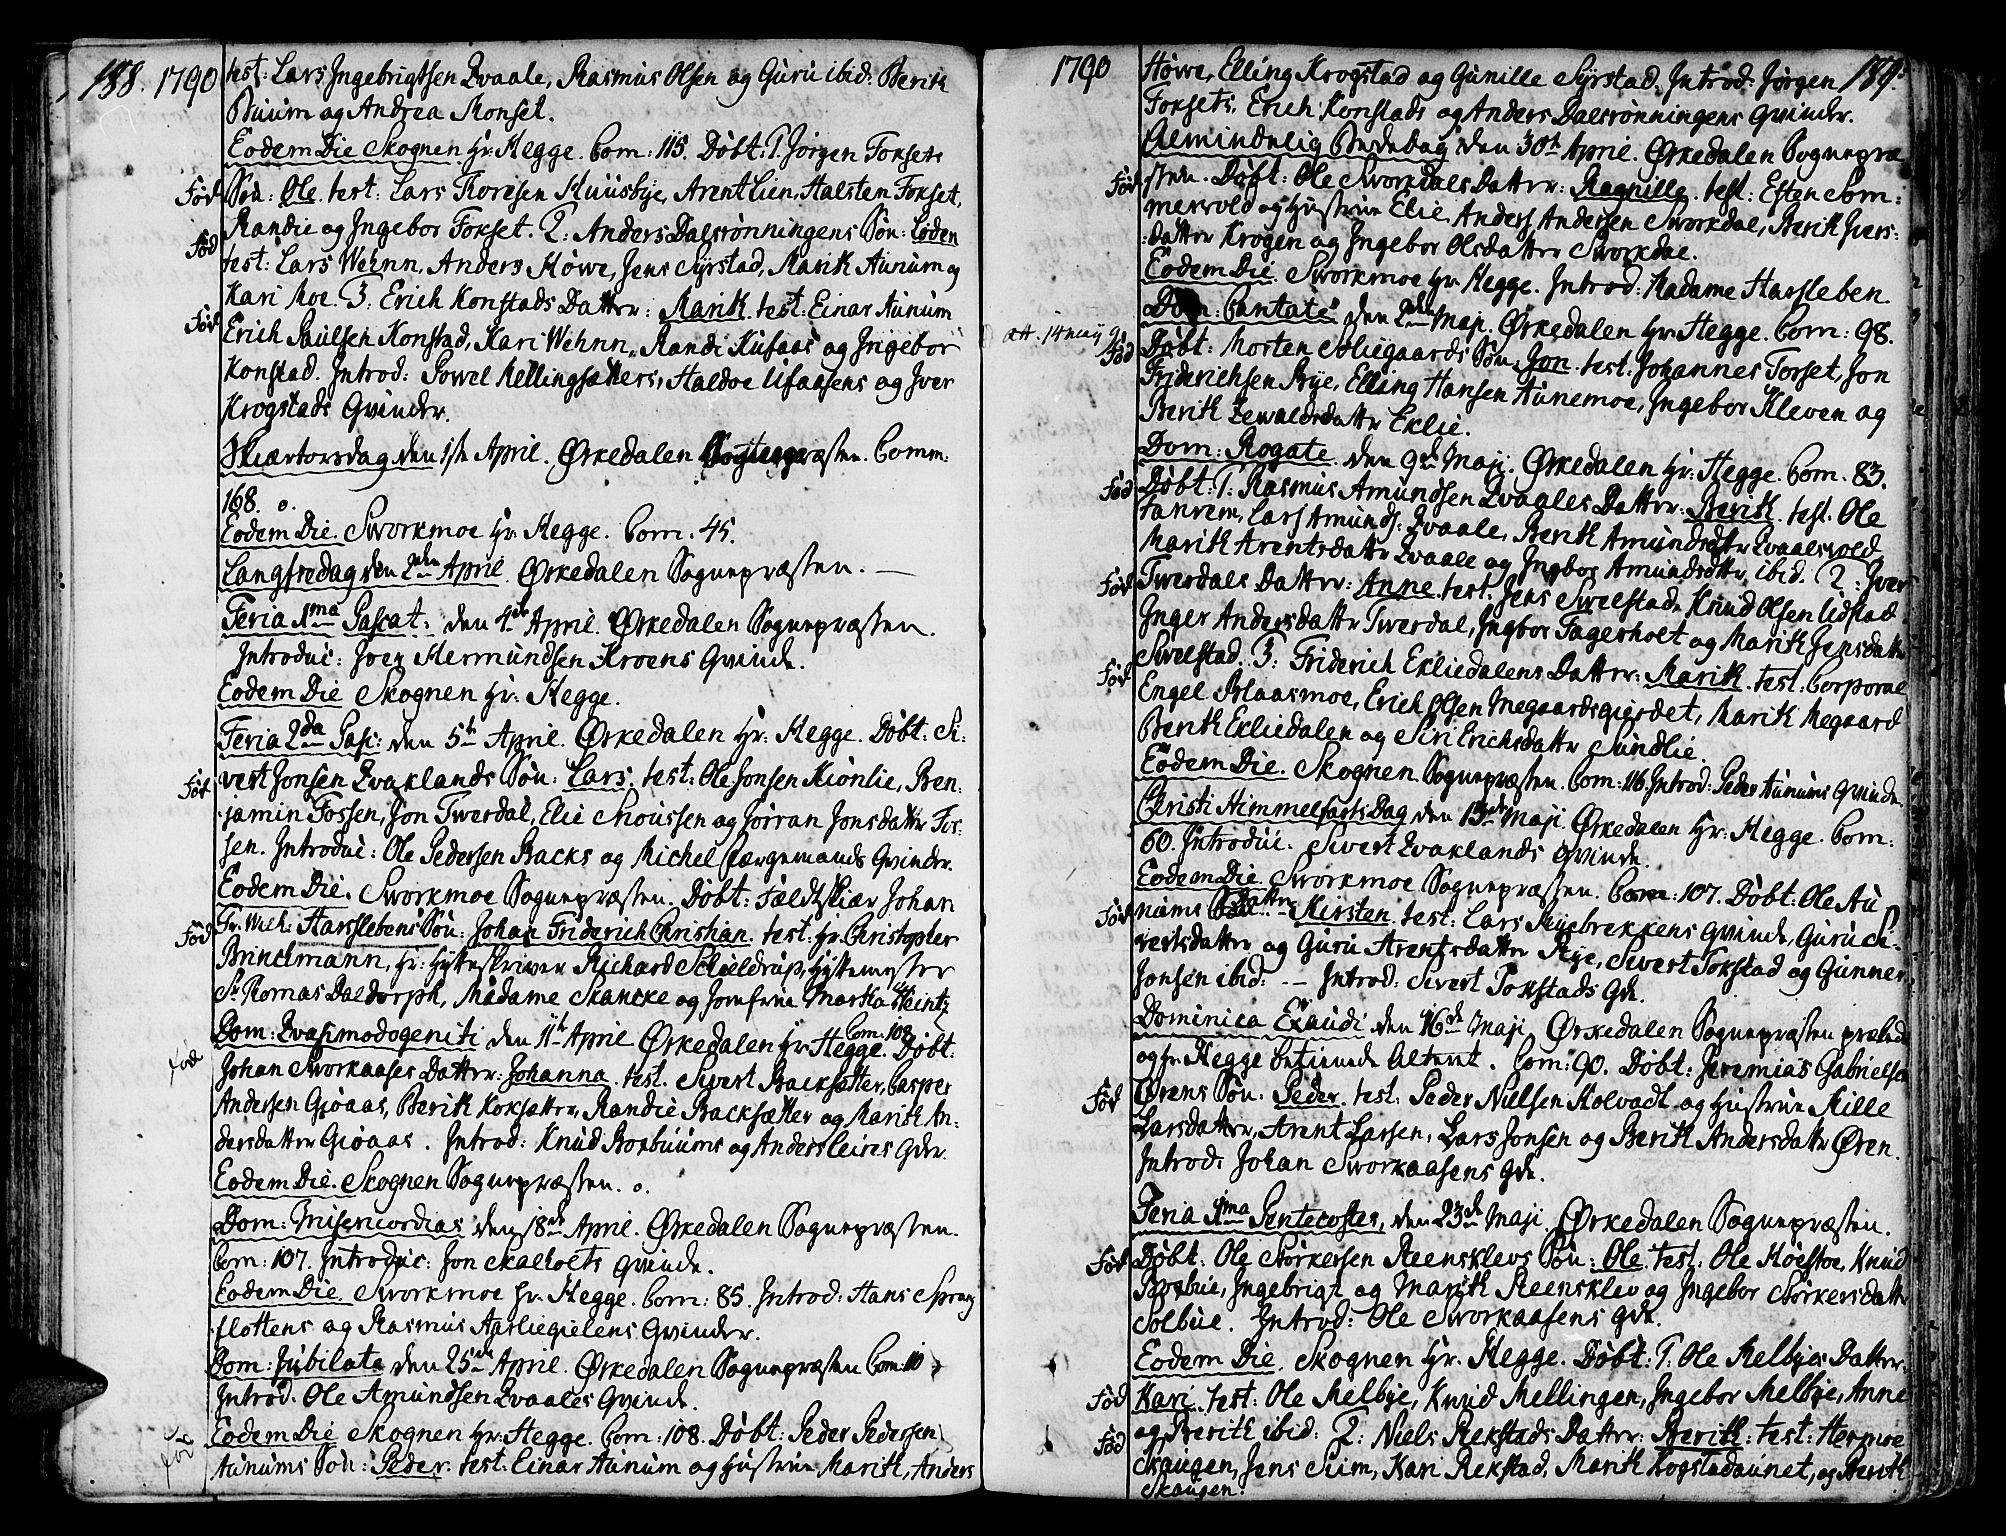 188. 1790
test: Lars Ingebrigtsen Qvaale, Rasmus Olsen og Guru ibid: Berit
Buum og Andrea Monset.
Eodem Die Skognen Hr: Hegge. Com: 115. Døbt: 1. Jörgen Forsets
Fød Sön: Ole. test: Lars Toresen Kuusbye, Arent Lien, Halsten Forset,
Randie og Ingebor Forset. 2: Anders Dalsrønningens Søn: Loden
Fød test: Lars Wehnn, Anders Höwe, Jens Syrstad, Marit Aunum og
Kari Moe. 3. Erich Konstads Datter: Marit. test: Einar Aunum
Fød Erich Paulsen Konstad, Kari Wehnn, Randi Kufaas og Ingebor
Konstad. Introd: Powel Mellingsæthers, Haldoe Ufaasens og Iver
Krogstads Qvinder.
Skiærtorsdag den 1ste April. Ørkedalen Sognepræsten. Comm:
168. o.
Eodem Die. Sworkmoe Hr. Hegge. Com: 45.
Langfredag den 2den April. Ørkedalen Sognepræsten. —
Feria 1ma Pascat: den 4de April. Ørkedalen Sognepræsten.
Introduc: Iver Hermundsen Kroens Qvinde.
Eodem Die Skognen Hr: Hegge.
Feria 2da Pasc: den 5te April. Ørkedalen Hr: Hegge. Døbt: Si-
Fød vert Jonsen Qvaklands Søn: Lars. test: Ole Jonsen Kiönlie, Ben-
jamin Fossen, Jon Twerdal, Elie Snoussen og Jørran Jonsdatter Fos-
sen. Introduc: Ole Pedersen Backs og Michel færgemands Qvinder.
Eodem Die. Sworkmoe Sognepræsten. Døbt: Feldtskiær Johan
Fød Fr. Wilh: Harslebens Søn: Johan Friderich Christian. test: Hr. Christopher
Brinchmann, Hr: Hytteskriver Richard Schieldrup, Hyttemester
Sr Tomas Daldorph, Madame Skancke og Jomfrue Martha Heintz
Com: 108
Dom: Qvasimodogeniti den 11te April Ørkedalen Hr Hegge. Døbt:
Fød Johan Sworkaases Datter: Johanna. test. Sivert Backsætter, Casper
Andersen Giöaas, Berit Koksætter, Randie Backsætter og Marit An-
dersdatter Giöaas. Introd: Knud Borbuums og Anders Leires Qvr.
Eodem Die. Skognen Sognepræsten. o.
Dom: Misericordias den 18de April. Ørkedalen Sognepræsten.
Com: 107. Introduc: Jon Skalholts Qvinde.
Eodem Die. Sworkmoe Hr. Hegge. Com: 85. Introd: Hans Sprang
flottens og Rasmus Aarliegielens Qvinder.
Dom: Jubilate den 25de April. Ørkedalen Sognepræsten Com: 10
Introd: Ole Amundsen Qvaales Qvinde.
Eodem Die Skognen Hr: Hegge. Com: 108. Døbt: Peder Pedersen
Fød Aunums Søn: Peder. test: Einar Aunum og Hustrue Marit, Anders
1790 189.
Höwe, Elling Krogstad og Gunille Syrstad. Introd: Jørgen
Forsets, Erich Konstads og Anders Dalsrønningens Qvinder.
Almindelig Bededag den 30te April. Ørkedalen Sognepræ-
Fød sten. Døbt: Ole Sworkdals Datter: Ragnille. test: Esten Som-
merwold og Hustrue Elie, Anders Andersen Sworkdal, Berit Iwers-
datter Krogen og Ingebor Olsdatter Sworkdal.
Eodem Die. Sworkmoe Hr. Hegge. Introd: Madame Harsleben.
Dom: Cantate den 2den Maji. Ørkedalen Hr: Hegge. Com: 98.
Fød Døbt: Morten Soliegaards Søn: Jon. test: Johannes Forset, Jon
Friderichsen Rye, Elling Hansen Aunemoe, Ingebor Kleven og
Berit Zewaldsdatter Eklie.
Dom: Rogate. den 9de Maji. Ørkedalen Hr: Hegge. Com: 83.
Fød Døbt: 1. Rasmus Amundsen Qvaales Datter: Berit. test. Ole
Fanrem, Lars Amunds: Qvaale, Berit Amundsdatter Qvaaleswold
Marit Arentsdatter Qvaale og Ingbor Amundsdatter ibid. 2: Iver
Fød Twerdals Datter: Anne. test. Jens Swelstad, Knud Olsen Udstad
Inger Andersdatter Twerdal, Ingbor Fagerholt og Marit Jensdatter
Swelstad. 3: Friderich Ekliedalens Datter: Marit. test: Corporal
Fød Engel Blaasmoe, Erich Olsen Megaardsgierdet, Marit Megaard
Berit Ekliedalen og Siri Erichsdatter Sundlie.
Eodem Die. Skognen Sognepræsten. Com: 116. Introd: Peder Aunums Qvinde.
Christi Himmelfarts Dag den 13de Maji Ørkedalen Hr: Hegge. Com:
60. Introduc: Sivert Qvaklands Qvinde.
Eodem Die Sworkmoe Sognepræsten. Com: 107. Døbt: Ole Au
Datter
Fød nums - Kirsten. test: Lars Ryebrekkens Qvinde, Guru Si-
vertsdatter og Guru Arentsdatter Rye, Sivert Forstad og Gunner
Jonsen ibid: -- Introd: Sivert Forstads Qde.
Dominica Exaudi den 16de Maji. Ørkedalen Sognepræsten præked
og Hr Hegge betiente Alteret. Com: 90. Døbt: Jeremias Gabrielsen
Fød Ørens Søn: Peder. test: Peder Nielsen Solvadt og Hustrue Sille
Larsdatter, Arent Larsen, Lars Jonsen og Berit Andersdatter Øren.
Introd: Johan Sworkaasens Qde.
Feria 1ma Pentecostes, den 23de Maji. Ørkedalen Sognepræsten.
Fød Døbt: Ole Størkersen Reensklevs Søn: Ole. test. Ole Hoelstoe, Knud
Borbue, Ingebrigt og Marit Reensklev og Ingebor Størkersdatter
Solbue. Introd: Ole Sworkaasens Qde.
Eodem Die. Skognen Hr. Hegge. Døbt: 1. Ole Melbyes Datter:
Fød Kari. test: Ole Melbye, Knud Mellingen, Ingebor Melbye, Anne
Fød og Berit ibid: 2: Niels Rekstads Datter: Berit: test: Hermoe
Skaugen, Jens Sum, Kari Rekstad, Marit Hogstadaunet, og Berit
Skaugen.